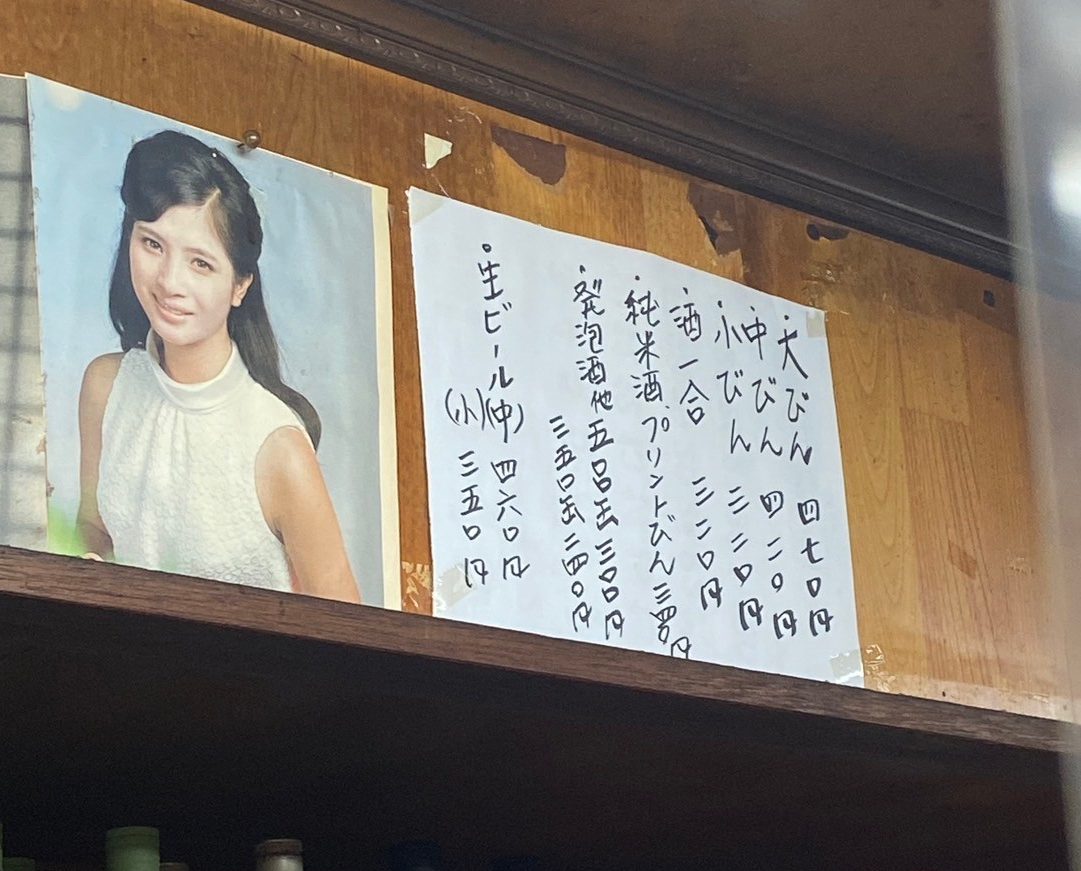 ・大びん 四七〇円
・中びん 四二〇円
・小びん 三三〇円
・酒一合 三二〇円
・純米酒プリントびん 三四〇円
・発泡酒他 五〇〇缶 三〇〇円
三五〇缶 二四〇円
・生ビール(中) 四六〇円
(小) 三五〇円